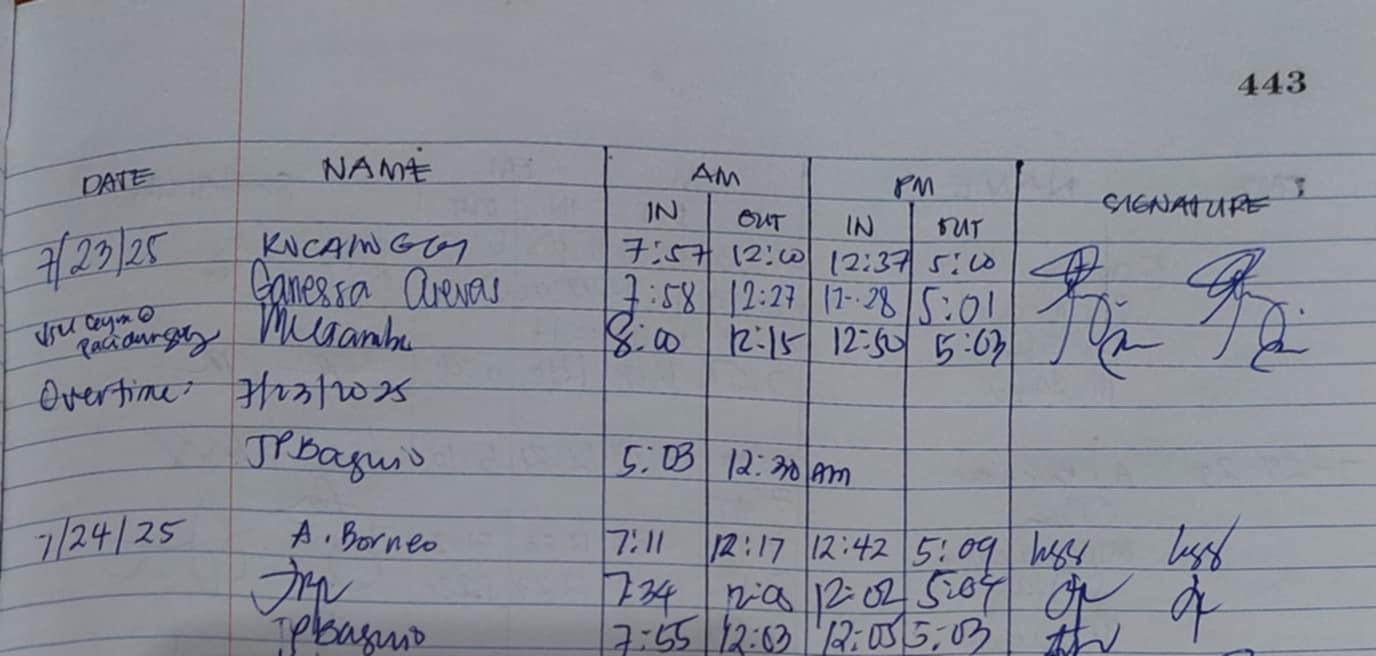 443
DATE NAME AM PM SIGNATURE
IN OUT IN OUT
7/23/25 7:57 12:00 12:37 5:00
Ganessa Arevas 7:58 12:27 12:28 5:01
8:00 12:15 12:50 5:03
Overtime: 7/23/2025
JPBaguio 5:03 12:30 Am
7/24/25 A. Borneo 7:11 12:17 12:42 5:09
734 12:02 5:04
JPBaguio 7:55 12:03 12:05 5:03